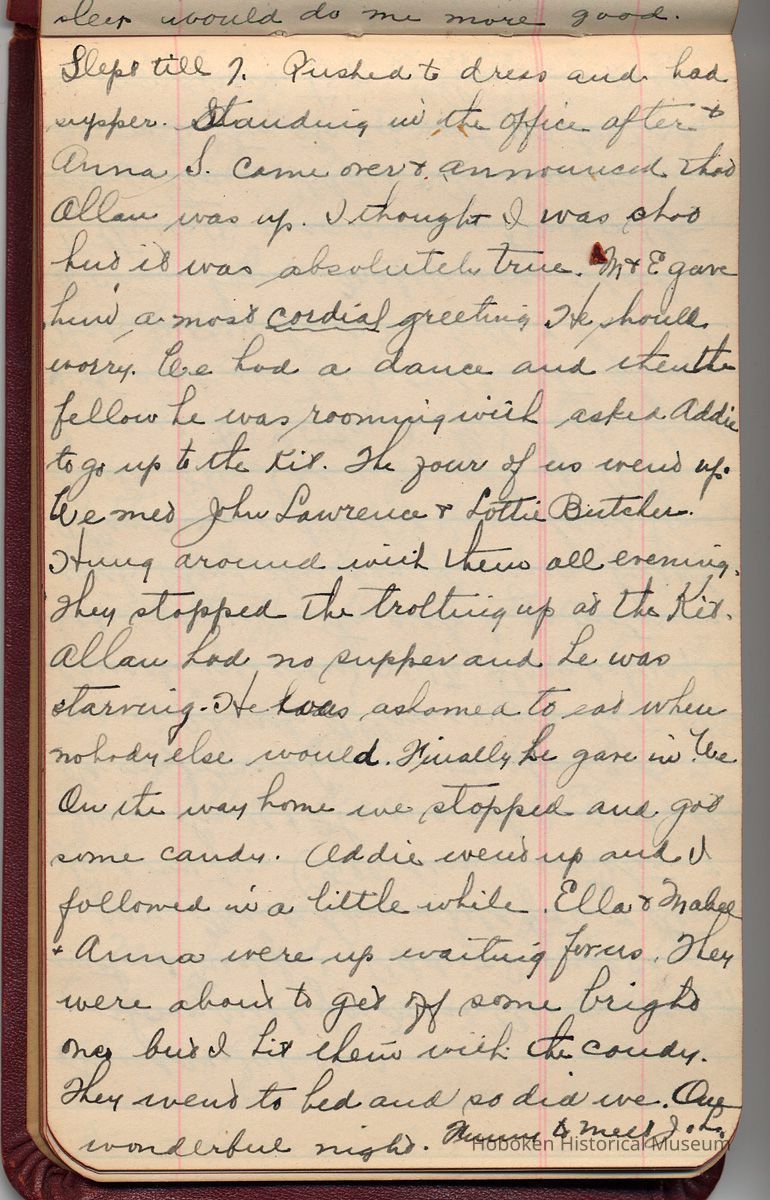 sleep would do me more good.
Slept till 7. Rushed to dress and had
supper. Standing in the office after &
Anna S. came over & announced that
Allan was up. I thought I was shot
but it was absolutely true. M & E gave
him a most cordial greeting He should
worry. We had a dance and then the
fellow he was rooming with asked Addie
to go up to the Kit. The four of us went up.
We met John Lawrence & Lottie Butcher.
Hung around with them all evening.
They stopped the trotting up at the Kit.
Allan had no supper and he was
starving. He was ashamed to eat when
nobody else would. Finally he gave in. We
On the way home we stopped and got
some candy. Addie went up and I
followed in a little while. Ella & Mabel
& Anna were up waiting for us. They
were about to get off some bright
ones but I hit them with the candy.
They went to bed and so did we. One
wonderful night. to meet John.
Hoboken Historical Museum